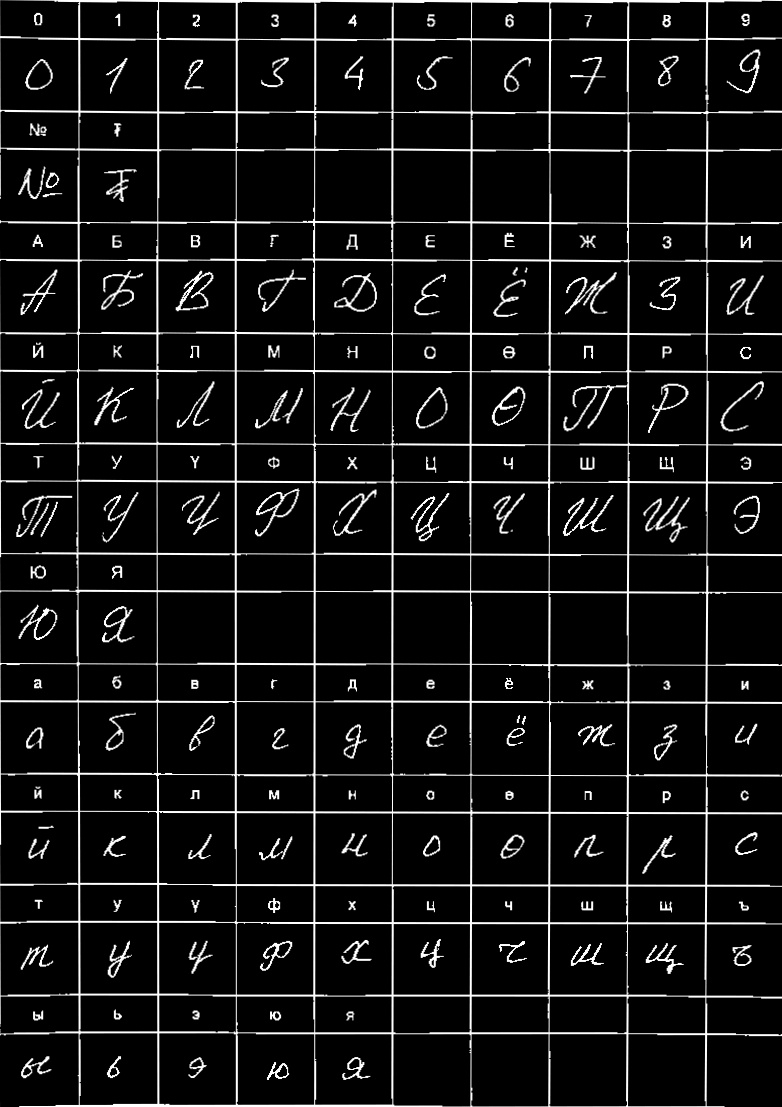 0 1 2 3 4 5 6 7 8 9
0 1 2 3 4 5 6 7 8 9
№ ₮
№ ₮
А Б В Г Д Е Ё Ж З И
А Б В Г Д Е Ё Ж З И
Й К Л М Н О Ө П Р С
Й К Л М Н О Ө П Р С
Т У Ү Ф Х Ц Ч Ш Щ Э
Т У Ү Ф Х Ц Ч Ш Щ Э
Ю Я
Ю Я
а б в г д е ё ж з и
а б в г д е ё ж з и
й к л м н о ө п р с
й к л м н о ө п р с
т у ү ф х ц ч ш щ ъ
т у ү ф х ц ч ш щ ъ
ы ь э ю я
ы ь э ю я